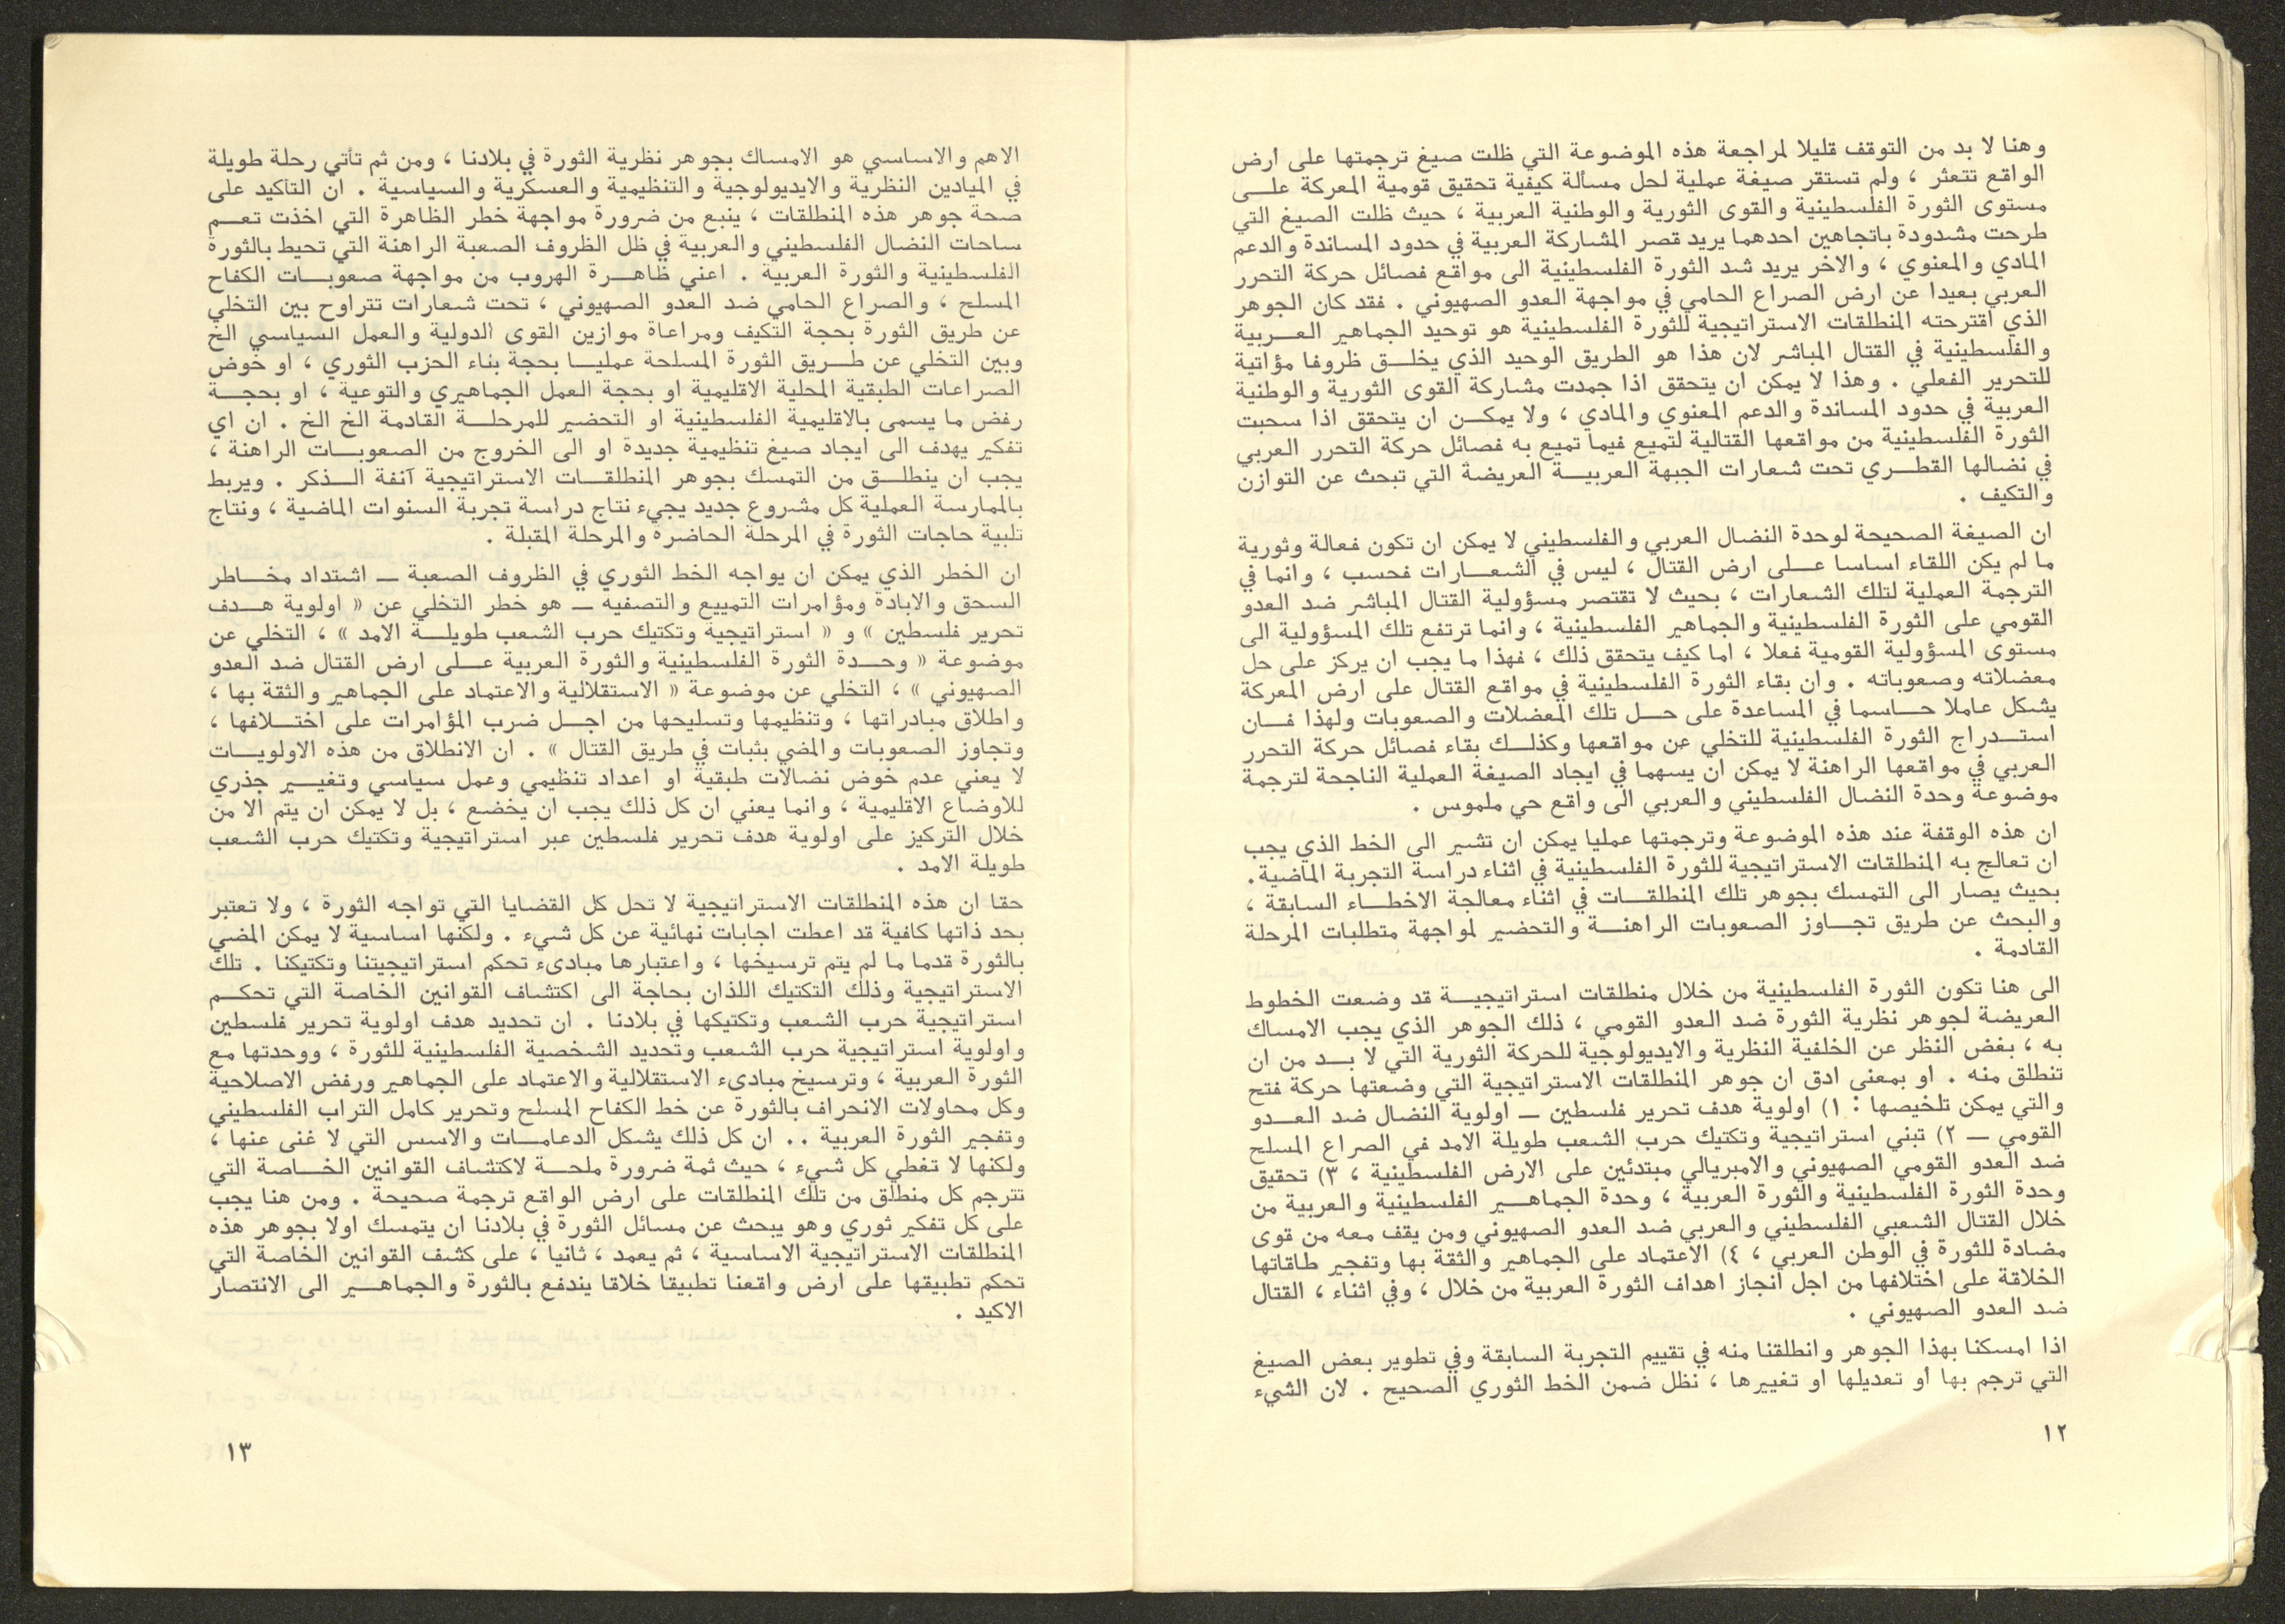 وهنا لا بد من التوقف قليلا لمراجعة هذه الموضوعة التي ظلت صيغ ترجمتها على أرض
الواقع تتعثر ، ولم تستقر صيغة عملية لحل مسألة كيفية تحقيق قومية المعركة علـــى
مستوى الثورة الفلسطينية والقوى الثورية والوطنية العربية ، حيث ظلت الصيغ التي
طرحت مشدودة باتجاهين احدهما يريد قصر المشاركة العربية في حدود المساندة والدعم
المادي والمعنوي ، والاخر يريد شد الثورة الفلسطينية الى مواقع فصائل حركة التحرر
العربي بعيدا عن ارض الصراع الحامي في مواجهة العدو الصهيوني . فقد كان الجوهر
الذي اقترحته المنطلقات الاستراتيجية للثورة الفلسطينية هو توحيد الجماهير العـــربية
والفلسطينية في القتال المباشر لان هذا هو الطريق الوحيد الذي يخلـــق ظروفا مؤاتية
للتحرير الفعلي . وهذا لا يمكن ان يتحقق اذا جمدت مشاركة القوى الثورية والوطنية
العربية في حدود المساندة والدعم المعنوي والمادي ، ولا يمكـــن ان يتحقق اذا سحبت
الثورة الفلسطينية من مواقعها القتالية لتميع فيما تميع به فصائل حركة التحرر العربي
في نضالها القطـــري تحت شعارات الجبهة العربيـــة العريضة التي تبحث عن التوازن
والتكيف .
ان الصيغة الصحيحة لوحدة النضال العربي والفلسطيني لا يمكن ان تكون فعالة وثورية
ما لم يكن اللقاء اساسا عـــلى ارض القتال ، ليس في الشعـــارات فحسب ، وانما في
الترجمة العملية لتلك الشعارات ، بحيث لا تقتصر مسؤولية القتال المباشر ضد العدو
القومي على الثورة الفلسطينية والجماهير الفلسطينية ، وانما ترتفع تلك المسؤولية الى
مستوى المسؤولية القومية فعلا ، اما كيف يتحقق ذلك ، فهذا ما يجب ان يركز على حل
معضلاته وصعوباته . وان بقاء الثورة الفلسطينية في مواقع القتال على ارض المعركة
يشكل عاملا حـــاسما في المساعدة على حـــل تلك المعضلات والصعوبات ولهذا فـــان
استـــدراج الثورة الفلسطينية للتخلي عن مواقعها وكذلـــك بقاء فصائل حركة التحرر
العربي في مواقعها الراهنة لا يمكن ان يسهما في ايجاد الصيغة العملية الناجحة لترجمة
موضوعة وحدة النضال الفلسطيني والعربي الى واقع حي ملموس .
ان هذه الوقفة عند هذه الموضوعة وترجمتها عمليا يمكن ان تشير الى الخط الذي يجب
ان تعالج به المنطلقات الاستراتيجية للثورة الفلسطينية في اثناء دراسة التجربة الماضية.
بحيث يصار الى التمسك بجوهر تلك المنطلقـــات في اثناء معالجة الاخطـــاء السابقة ،
والبحث عن طريق تجـــاوز الصعوبات الراهنـــة والتحضير لمواجهة متطلبات المرحلة
القادمة .
الى هنا تكون الثورة الفلسطينية من خلال منطلقات استراتيجيـــة قد وضعت الخطوط
العريضة لجوهر نظرية الثورة ضد العدو القومي ، ذلك الجوهر الذي يجب الامساك
به ، بغض النظر عن الخلفية النظرية والايديولوجية للحركة الثورية التي لا بـــد من ان
تنطلق منه . او بمعنى ادق ان جوهر المنطلقات الاستراتيجية التي وضعتها حركة فتح
والتي يمكن تلخيصها : ١) اولوية هدف تحرير فلسطين ـــ اولوية النضال ضد العـــدو
القومي ـــ ٢) تبني استراتيجية وتكتيك حرب الشعب طويلة الامد في الصراع المسلح
ضد العدو القومي الصهيوني والامبريالي مبتدئين على الارض الفلسطينية ، ٣) تحقيق
وحدة الثورة الفلسطينية والثورة العربية ، وحدة الجماهـــير الفلسطينية والعربية من
خلال القتال الشعبي الفلسطيني والعربي ضد العدو الصهيوني ومن يقف معه من قوى
مضادة للثورة في الوطن العربي ، ٤) الاعتماد على الجماهير والثقة بها وتفجير طاقاتها
الخلاقة على اختلافها من اجل انجاز اهداف الثورة العربية من خلال ، وفي اثناء ، القتال
ضد العدو الصهيوني .
اذا امسكنا بهذا الجوهر وانطلقنا منه في تقييم التجربة السابقة وفي تطوير بعض الصيغ
التي ترجم بها أو تعديلها او تغييرها ، نظل ضمن الخط الثوري الصحيح . لان الشيء
١٢
الاهم والاساسي هو الامساك بجوهر نظرية الثورة في بلادنا ، ومن ثم تأتي رحلة طويلة
في الميادين النظرية والايديولوجية والتنظيمية والعسكرية والسياسية . ان التأكيد على
صحة جوهر هذه المنطلقات ، ينبع من ضرورة مواجهة خطر الظاهرة التي اخذت تعـــم
ساحات النضال الفلسطيني والعربية في ظل الظروف الصعبة الراهنة التي تحيط بالثورة
الفلسطينية والثورة العربية . اعني ظاهـــرة الهروب من مواجهة صعوبـــات الكفاح
المسلح ، والصراع الحامي ضد العدو الصهيوني ، تحت شعارات تتراوح بين التخلي
عن طريق الثورة بحجة التكيف ومراعاة موازين القوى الدولية والعمل السياسي الخ
وبين التخلي عن طـــريق الثورة المسلحة عمليـــا بحجة بناء الحزب الثوري ، او خوض
الصراعات الطبقية المحلية الاقليمية او بحجة العمل الجماهيري والتوعية ، او بحجـــة
رفض ما يسمى بالاقليمية الفلسطينية او التحضير للمرحلـــة القادمة الخ الخ . ان اي
تفكير يهدف الى ايجاد صيغ تنظيمية جديدة او الى الخروج من الصعوبـــات الراهنة ،
يجب ان ينطلـــق من التمسك بجوهر المنطلقـــات الاستراتيجية آنفة الـــذكر . ويربط
بالممارسة العملية كل مشروع جديد يجيء نتاج دراسة تجربة السنوات الماضية ، ونتاج
تلبية حاجات الثورة في المرحلة الحاضرة والمرحلة المقبلة .
ان الخطر الذي يمكن ان يواجه الخط الثوري في الظروف الصعبة ـــ اشتداد مخـــاطر
السحق والابادة ومؤامرات التمييع والتصفيه ـــ هو خطر التخلي عن « اولوية هـــدف
تحرير فلسطين » و « استراتيجية وتكتيك حرب الشعب طويلـــة الامد » ، التخلي عن
موضوعة « وحـــدة الثورة الفلسطينية والثورة العربية عـــلى ارض القتال ضد العدو
الصهيوني » ، التخلي عن موضوعة « الاستقلالية والاعتماد على الجماهير والثقة بها ،
واطلاق مبادراتها ، وتنظيمها وتسليحها من اجـــل ضرب المؤامرات على اختـــلافها ،
وتجاوز الصعوبات والمضي بثبات في طريق القتال » . ان الانطلاق من هذه الاولويـــات
لا يعني عدم خوض نضالات طبقية او اعداد تنظيمي وعمل سياسي وتغيـــير جذري
للاوضاع الاقليمية ، وانما يعني ان كل ذلك يجب ان يخضع ، بل لا يمكن ان يتم الا من
خلال التركيز على اولوية هدف تحرير فلسطين عبر استراتيجية وتكتيك حرب الشعب
طويلة الامد .
حقا ان هذه المنطلقات الاستراتيجية لا تحل كل القضايا التي تواجه الثورة ، ولا تعتبر
بحد ذاتها كافية قد اعطت اجابات نهائية عن كل شيء . ولكنها اساسية لا يمكن المضي
بالثورة قدما ما لم يتم ترسيخها ، واعتبارها مبادىء تحكم استراتيجيتنا وتكتيكنا . تلك
الاستراتيجية وذلك التكتيك اللذان بحاجة الى اكتشاف القوانين الخاصة التي تحكـــم
استراتيجية حرب الشعب وتكتيكها في بلادنا . ان تحديد هدف اولوية تحرير فلسطين
واولوية استراتيجية حرب الشعب وتحديد الشخصية الفلسطينية للثورة ، ووحدتها مع
الثورة العربية ، وترسيخ مبادىء الاستقلالية والاعتماد على الجماهير ورفض الاصلاحية
وكل محاولات الانحراف بالثورة عن خط الكفاح المسلح وتحرير كامل التراب الفلسطيني
وتفجير الثورة العربية .. ان كل ذلك يشكل الدعامـــات والاسس التي لا غنى عنها ،
ولكنها لا تغطي كل شيء ، حيث ثمة ضرورة ملحـــة لاكتشاف القوانين الخـــاصة التي
تترجم كل منطلق من تلك المنطلقات على ارض الواقع ترجمة صحيحة . ومن هنا يجب
على كل تفكير ثوري وهو يبحث عن مسائل الثورة في بلادنا ان يتمسك اولا بجوهر هذه
المنطلقات الاستراتيجية الاساسية ، ثم يعمد ، ثانيا ، على كشف القوانين الخاصة التي
تحكم تطبيقها على ارض واقعنا تطبيقا خلاقا يندفع بالثورة والجماهـــير الى الانتصار
الاكيد .
١٣